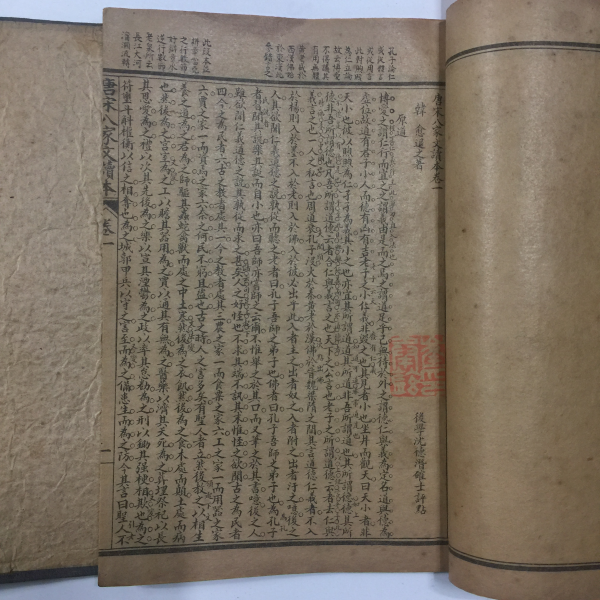 唐宋八家文讀本卷一
韓愈退之著
後學沈德潛確士評點
原道
博愛之謂仁行而宜之之謂義由是而之焉之謂道足乎己無待於外之謂德仁與義為定名道與德為
虛位故道有君子小人而德有凶有吉老子之小仁義非毀之也其見者小也坐井而觀天曰天小者非
天小也彼以煦煦為仁孑孑為義其小之也亦宜其所謂道道其所道非吾所謂道也其所謂德德其所
德非吾所謂德也凡吾所謂道德云者合仁與義言之也天下之公言也老子之所謂道德云者去仁與
義言之也一人之私言也周道衰孔子沒火於秦黃老於漢佛於晉魏梁隋之間其言道德仁義者不入
於楊則入於墨不入於老則入於佛入於彼必出於此入者主之出者奴之入者附之出者汙之噫後之
人其欲聞仁義道德之說孰從而聽之老者曰孔子吾師之弟子也佛者曰孔子吾師之弟子也為孔子
者習聞其說樂其誕而自小也亦曰吾師亦嘗師之云爾不惟舉之於其口而又筆之於其書噫後之人
雖欲聞仁義道德之說其孰從而求之甚矣人之好怪也不求其端不訊其末惟怪之欲聞古之為民者
四今之為民者六古之教者處其一今之教者處其三農之家一而食粟之家六工之家一而用器之家
六賈之家一而資焉之家六奈之何民不窮且盜也古之時人之害多矣有聖人者立然後教之以相生
養之道為之君為之師驅其蟲蛇禽獸而處之中土寒然後為之衣飢然後為之食木處而顛土處而病
也然後為之宮室為之工以贍其器用為之賈以通其有無為之醫藥以濟其夭死為之葬埋祭祀以長
其恩愛為之禮以次其先後為之樂以宣其湮鬱為之政以率其怠勌為之刑以鋤其强梗相欺也為之
符璽斗斛權衡以信之相奪也為之城郭甲兵以守之害至而為之備患生而為之防今其言曰聖人不
唐宋八家文讀本
卷一
一